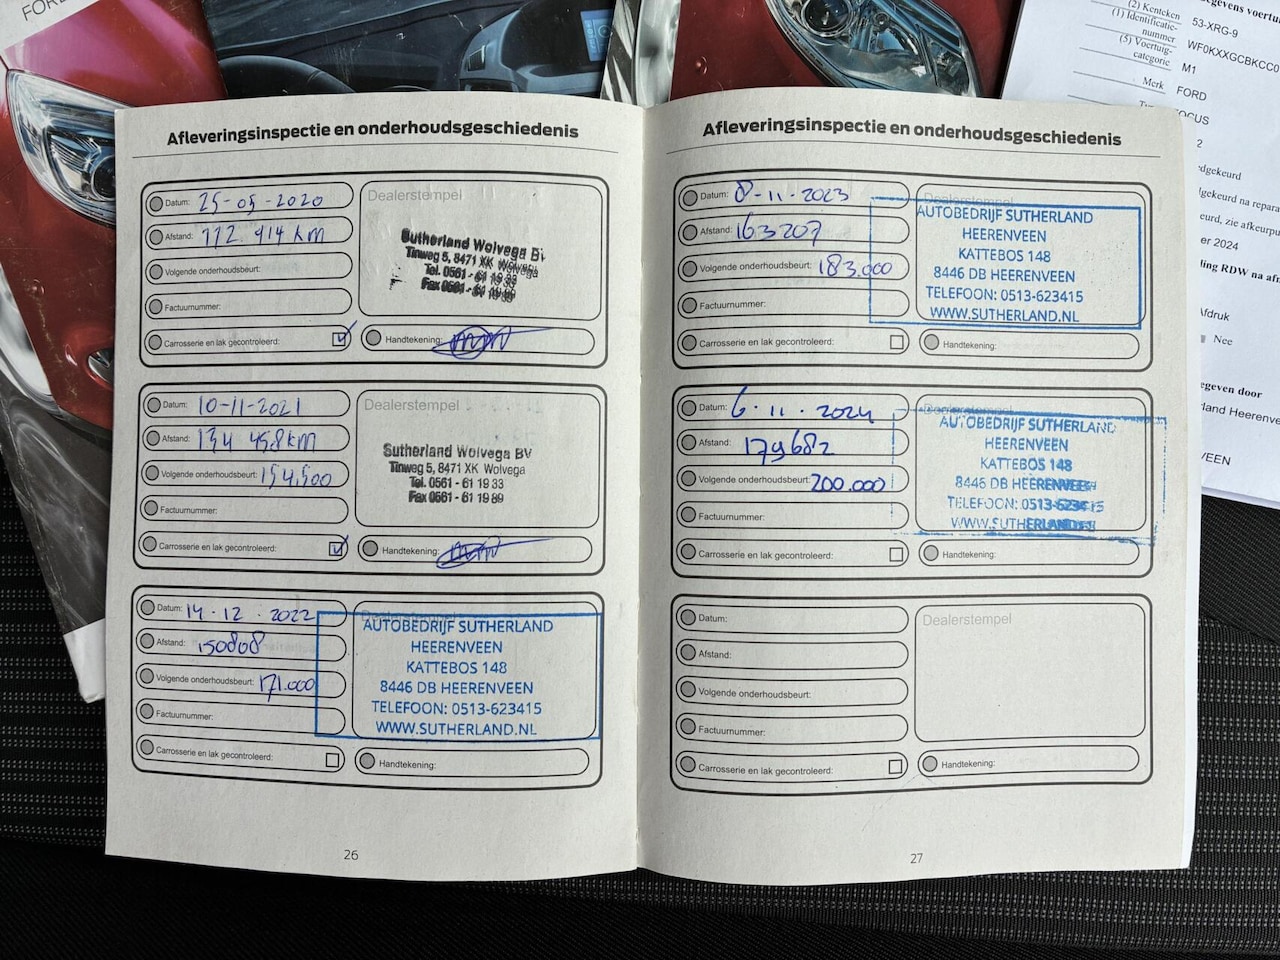 FORD
(2) Kenteken 53-XRG-9
(1) Identificatie-
nummer WF0KXXGCBKCC0
(5) Voertuig-
categorie M1
Merk FORD
Afleveringsinspectie en onderhoudsgeschiedenis
Datum: 25-05-2020
Afstand: 112.414 km
Volgende onderhoudsbeurt:
Factuurnummer:
Carrosserie en lak gecontroleerd:
Dealerstempel
Sutherland Wolvega BV
Tinweg 5, 8471 XK Wolvega
Tel. 0561 - 61 19 33
Fax 0561 - 61 19 89
Handtekening:
Datum: 10-11-2021
Afstand: 134 458 km
Volgende onderhoudsbeurt: 154,500
Factuurnummer:
Carrosserie en lak gecontroleerd:
Dealerstempel
Sutherland Wolvega BV
Tinweg 5, 8471 XK Wolvega
Tel. 0561 - 61 19 33
Fax 0561 - 61 19 89
Handtekening:
Datum: 14-12-2022
Afstand: 150808
Volgende onderhoudsbeurt: 171.000
Factuurnummer:
Carrosserie en lak gecontroleerd:
Dealerstempel
AUTOBEDRIJF SUTHERLAND
HEERENVEEN
KATTEBOS 148
8446 DB HEERENVEEN
TELEFOON: 0513-623415
WWW.SUTHERLAND.NL
Handtekening:
26
Afleveringsinspectie en onderhoudsgeschiedenis
Datum: 8-11-2023
Afstand: 163207
Volgende onderhoudsbeurt: 183.000
Factuurnummer:
Carrosserie en lak gecontroleerd:
Dealerstempel
AUTOBEDRIJF SUTHERLAND
HEERENVEEN
KATTEBOS 148
8446 DB HEERENVEEN
TELEFOON: 0513-623415
WWW.SUTHERLAND.NL
Handtekening:
Datum: 6-11-2024
Afstand: 179682
Volgende onderhoudsbeurt: 200.000
Factuurnummer:
Carrosserie en lak gecontroleerd:
Dealerstempel
AUTOBEDRIJF SUTHERLAND
HEERENVEEN
KATTEBOS 148
8446 DB HEERENVEEN
TELEFOON: 0513-623415
WWW.SUTHERLAND.NL
Handtekening:
Datum:
Afstand:
Volgende onderhoudsbeurt:
Factuurnummer:
Carrosserie en lak gecontroleerd:
Dealerstempel
Handtekening:
27
er 2024
ling RDW na
Nee